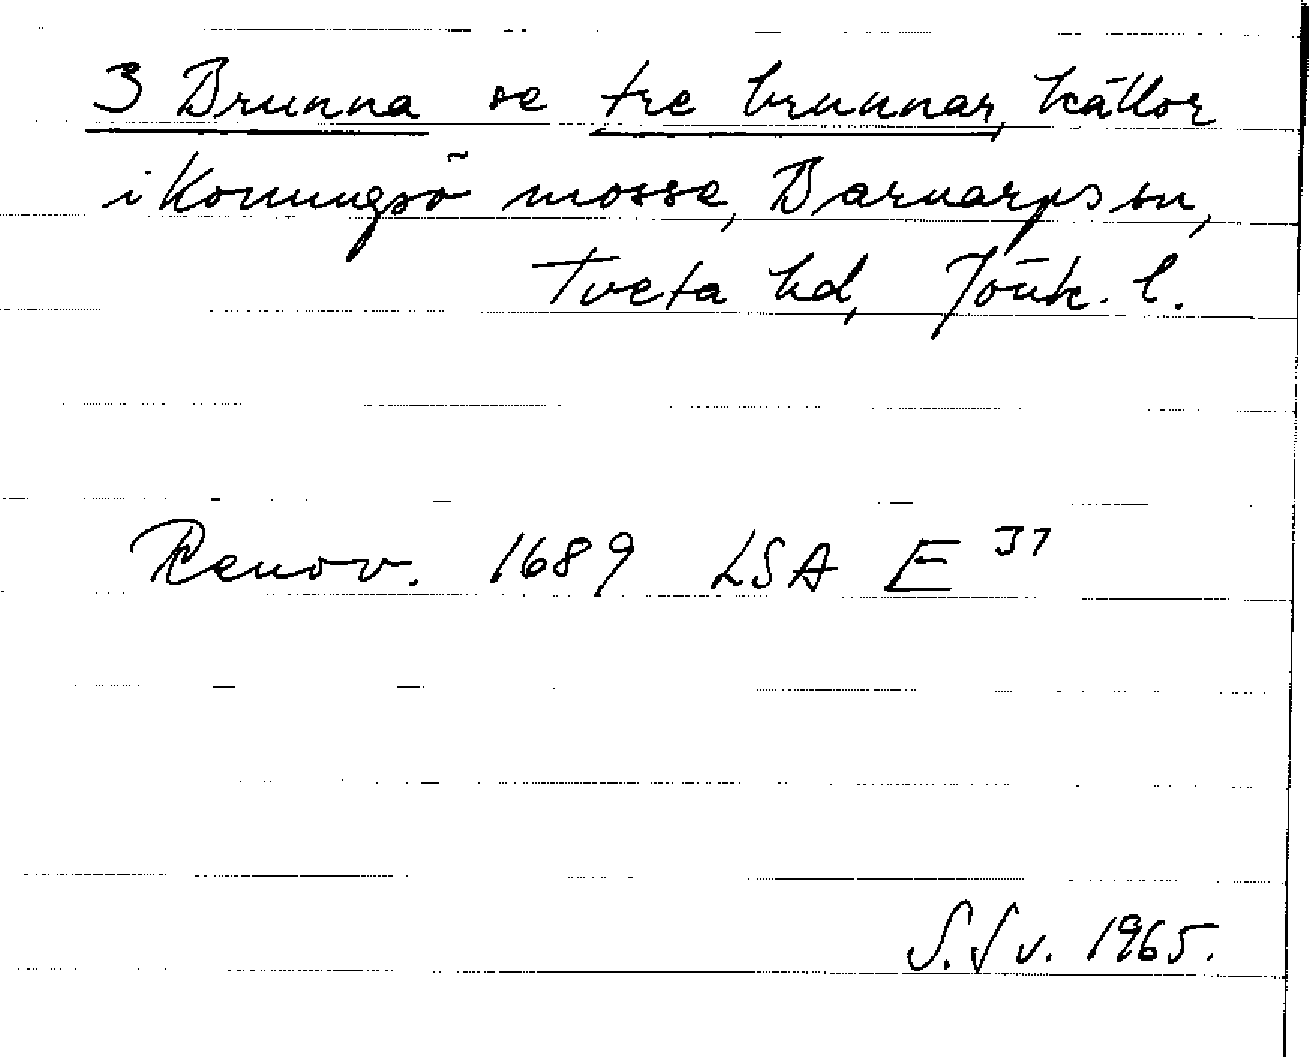 3 Brunna se tre brunnar, källor
i Konungsö mosse, Barnarps sn,
Tveta hd, Jönk. l.
Renov. 1689 LSA E 37
S. Sv. 1965.